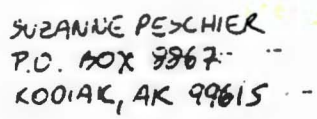 SUZANNE PESCHIER
P.O. BOX 8867
KODIAK, AK 99615